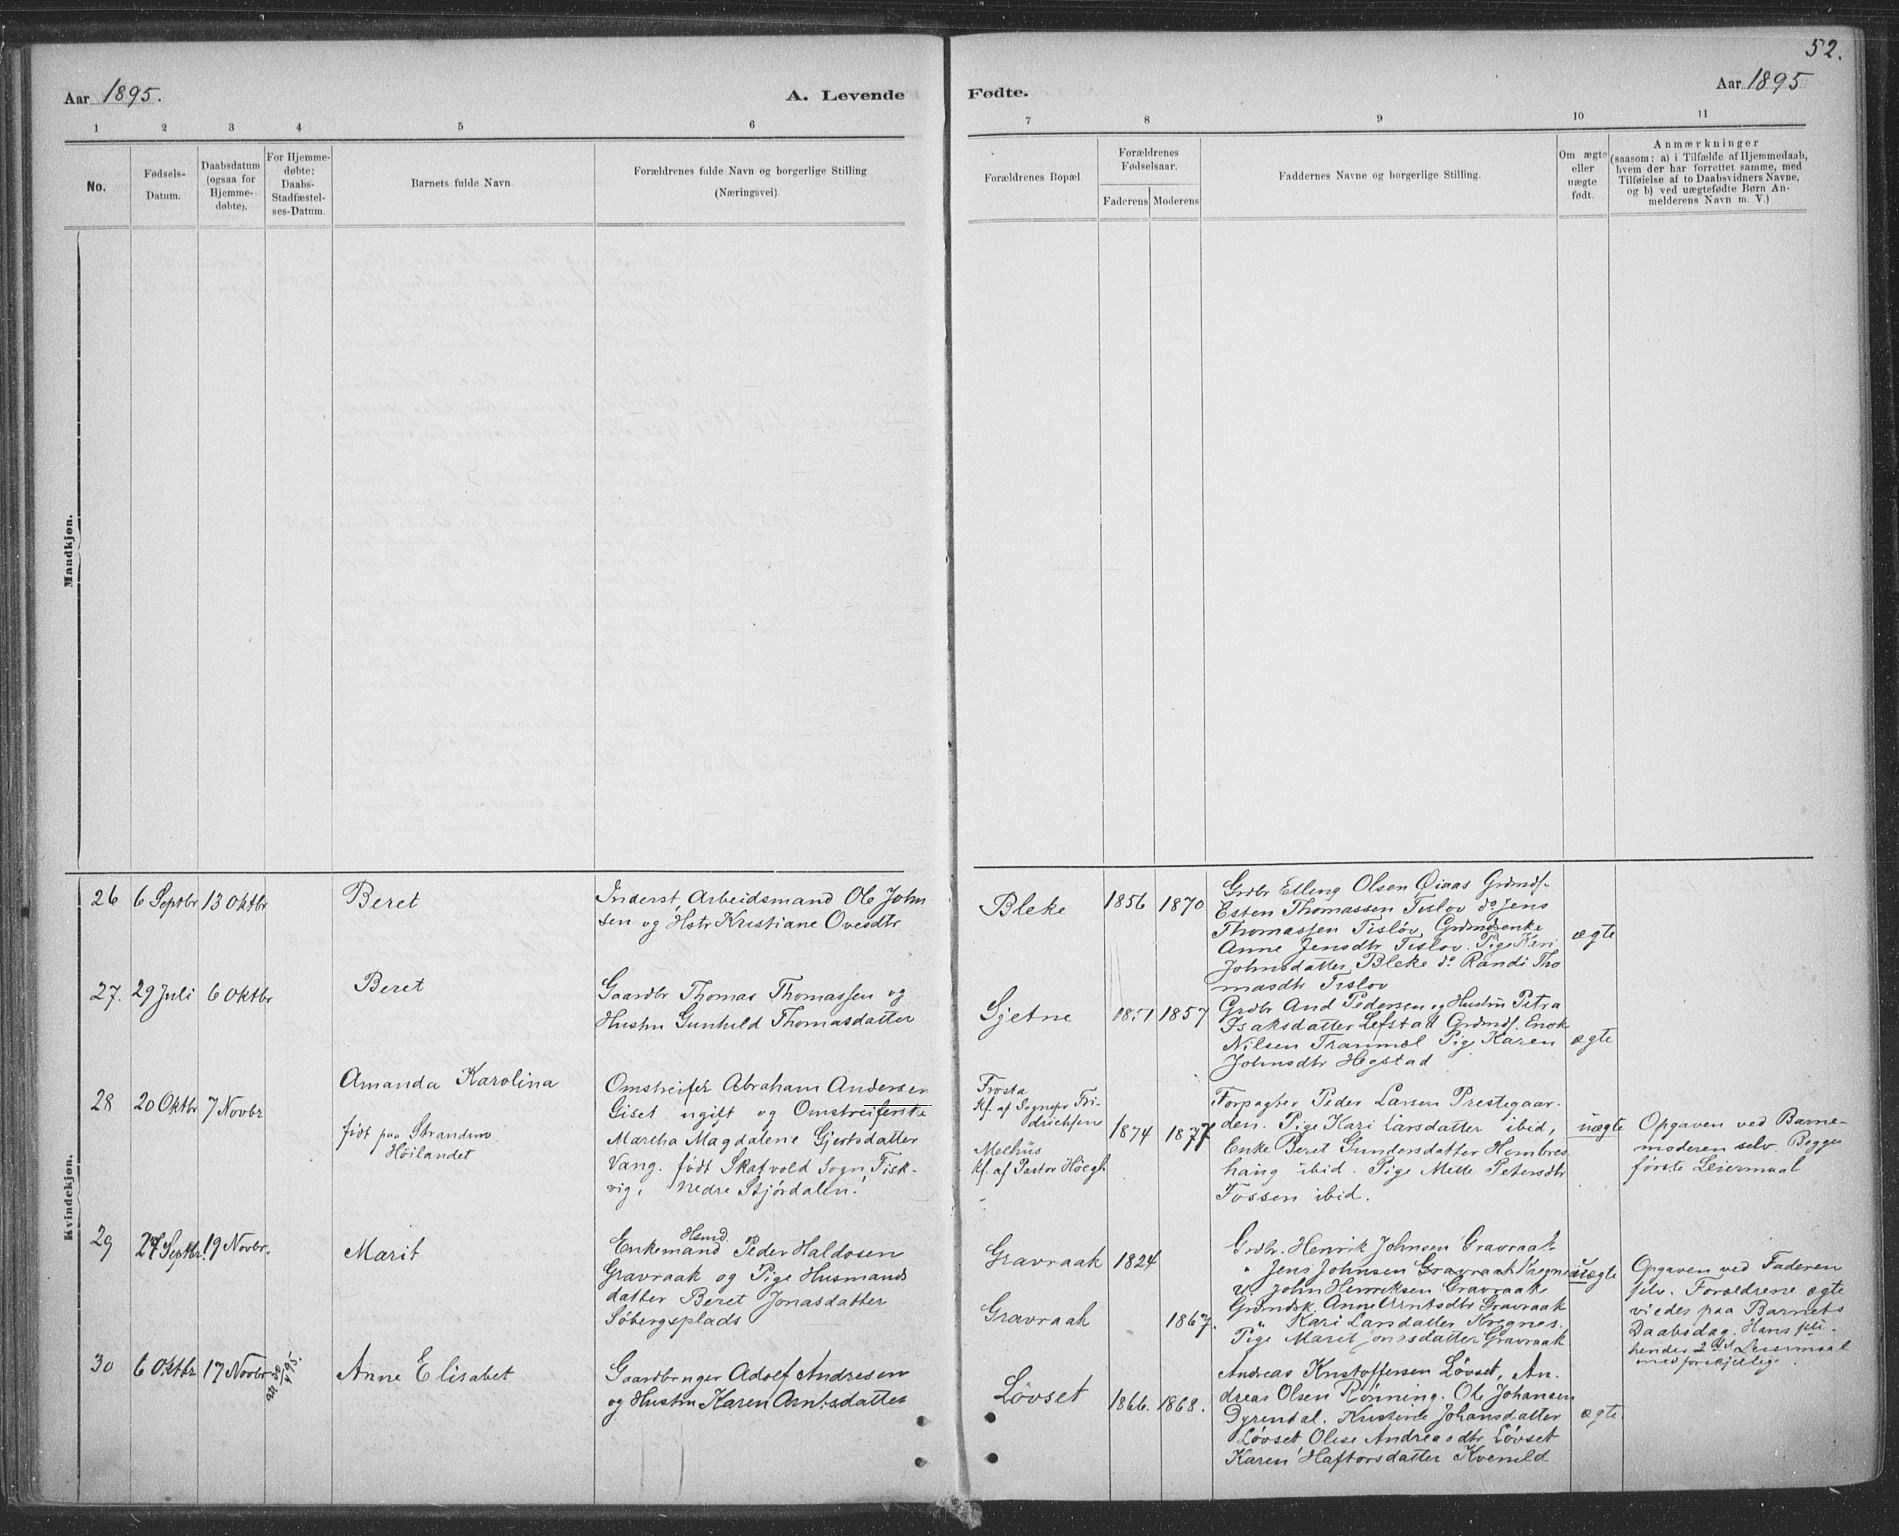 52.
Aar 1895.
A. Levende
Fødte.
Aar 1895
1 2 3 4 5 6 7 8 9 10 11
No.
Fødsels-
Datum.
Daabsdatum
(ogsaa for
Hjemme-
døbte).
For Hjemme-
døbte:
Daabs-
Stadfæstel-
ses-Datum.
Barnets fulde Navn
Forældrenes fulde Navn og borgerlige Stilling
(Næringsvei).
Forældrenes Bopæl.
Forældrenes
Fødselsaar.
Faderens Moderens
Faddernes Navne og borgerlige Stilling.
Om ægte
eller
uægte
født.
Anmærkninger
(saasom: a) i Tilfælde af Hjemmedaab,
hvem der har forrettet samme, med
Tilføielse af to Daabsvidners Navne,
og b) ved uægtefødte Børn An-
melderens Navn m. V.)
Mandkjøn.
Kvindekjøn.
26 6 Septbr 13 Oktbr
Beret
Inderst, Arbeidsmand Ole John
sen og Hstr Kristiane Ovesdtr
Bleke
1856 1870
Grdbr Elling Olsen Øiaas Grdmds.
Esten Thomassen Tislov do Jens
Thomassen Tisløv, Grdmdsenke
Anne Jensdtr Tislov. Pige Kari
Johnsdatter Bleke do Randi Tho
masdtr Tislov
ægte
27. 29 Juli 6 Oktbr
Beret
Gaardbr Thomas Thomassen og
Hustru Gunhild Thomasdatter
Sjetne
1851 1857
Grdbr And Pedersen og Hustru Petra
Isaksdatter Lefstad Grdmds. Enok
Nilsen Tranmæl Pige Karen
Johnsdtr Hegstad
ægte
28 20 Oktbr 7 Novbr
Amanda Karolina
født paa Strandmo
Høilandet
Omstreifer Abraham Andersen
Giset ugift og Omstreiferske
Martha Magdalene Gjertsdatter
Vang. født Skatvold Sogn, Fisk-
vig, Nedre Stjørdalen.
Frosta
Kf. af Sognepr Fri-
drichsen
Melhus
Kf. af Pastor Høegh
1874 1877
Forpagter Peder Larsen Prestegaar-
den. Pige Kari Larsdatter ibid,
Enke Beret Gundersdatter Hombres
haug ibid. Pige Mette Petersdtr
Fossen ibid.
uægte
Opgaven ved Barne-
moderen selv. Begges
første Leiermaal
29 27 Septbr. 19 Novbr.
Marit
Hsmd.
Enkemand Peder Haldosen
Gravraak og Pige Husmands
datter Beret Jonasdatter
Søbergsplads
Gravraak
Gravraak
1824
1867.
Grdbr. Henrik Johnsen Gravraak
" Jens Johnsen Gravraak Kregnes
U. John Henriksen Gravraak
Grdmdsk. Anne Arntsdtr Gravraak
" Kari Larsdatter Kregnes.
Pige Marit Jonasdatter Gravraak
uægte
Opgaven ved Faderen
selv. Forældrene ægte
viedes paa Barnets
Daabsdag. Hans 
hendes 2det Leiermaal
med forskjellige.
30 6 Oktbr 17 Novbr
Anne Elisabet
Gaardbruger Adolf Andresen
og Hustru Karen Arntsdatter
Løvset
1866. 1868.
Andreas Kristoffersen Løvset, An-
dreas Olsen Rønning. Ole Johansen
Dyrendal. Kristine Johansdatter
Løvset Oline Andreasdtr Løvset
Karen Haftorsdatter Kvenild
ægte.